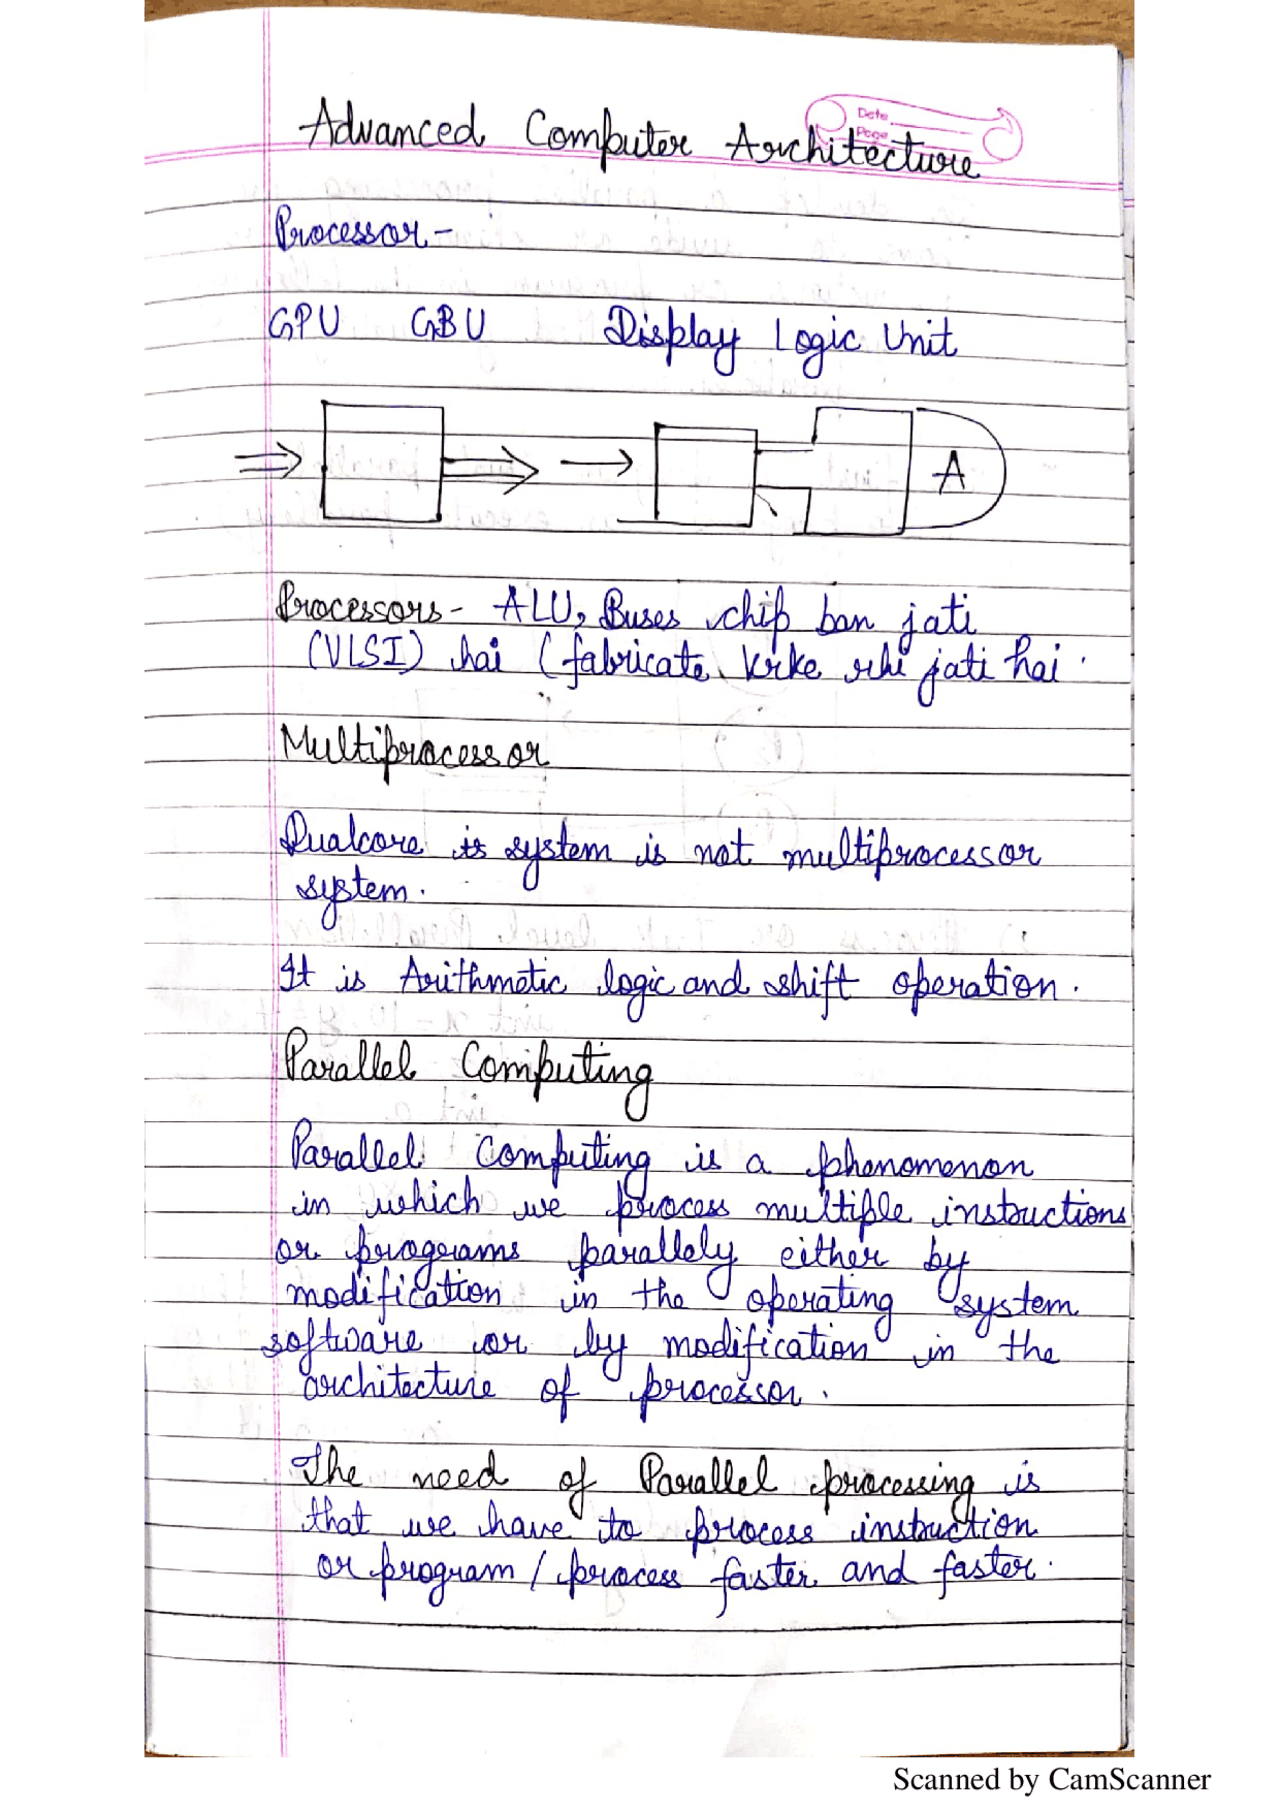 Date
Page
Advanced Computer Architecture
Processor -
GPU GBU Display Logic Unit
A
Processors - ALU, Buses chip ban jati
(VLSI) hai (fabricate krke rhi jati hai.
Multiprocessor
Dualcore is system is not multiprocessor
system.
It is Arithmetic logic and shift operation.
Parallel Computing
Parallel Computing is a phenomenon
in which we process multiple instructions
or programs parallely either by
modification in the operating system
software or by modification in the
architecture of processor.
The need of Parallel processing is
that we have to process instruction
or program / process faster and faster.
Scanned by CamScanner